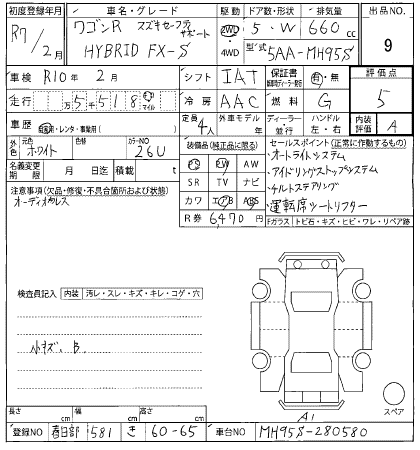 初度登録年月 車名・グレード 駆動 ドア数・形状 排気量 出品NO.
R7/2月 ワゴンR スズキセーフティサポート 2WD 5・W 660cc 9
HYBRID FX-S 4WD 型式 5AA-MH95S
車検 R10年 2月 シフト IAT 保証書 有・無 評価点
走行 万5千518 km マイル 冷房 AAC 燃料 G 5
車歴 自家用・レンタ・事業用( ) 定員 4人 外車モデル 年 ディーラー・並行 ハンドル 左・右 内装評価 A
外色 元色 ホワイト 色替 カラーNO 26U
装備品(純正品に限る) セールスポイント(正常に作動するもの)
名義変更期限 月 日迄 積載 t PS PW AW ・オートライトシステム
注意事項(欠品・修復・不具合箇所および状態) SR TV ナビ ・アイドリングストップシステム
オーディオレス カワ エアB ABS ・チルトステアリング
R券 6470円 ・運転席シートリフター
Fガラス トビ石・キズ・ヒビ・ワレ・リペア跡
検査員記入 内装 汚レ・スレ・キズ・キレ・コゲ・穴
小キズ、B
A1
スペア
長さ cm 幅 cm 高さ cm
登録NO 春日部 581 き 60-65 車台NO MH95S-280580